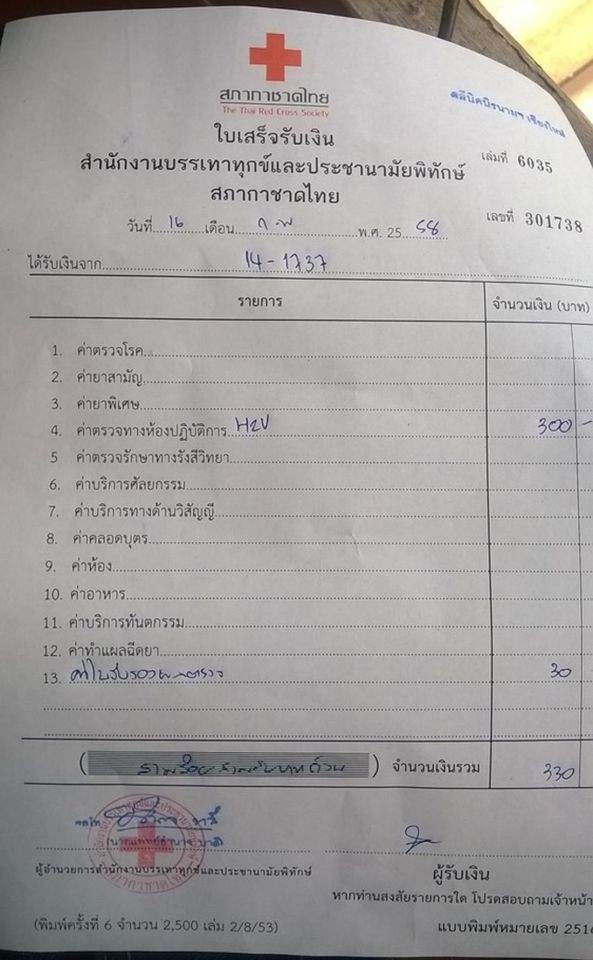 สภากาชาดไทย
The Thai Red Cross Society
คลินิคนิรนามฯ เชียงใหม่
ใบเสร็จรับเงิน
เล่มที่ 6035
สำนักงานบรรเทาทุกข์และประชานามัยพิทักษ์
สภากาชาดไทย
เลขที่ 301738
วันที่ 16 เดือน ก พ พ.ศ. 25 58
ได้รับเงินจาก 14-1737
รายการ จำนวนเงิน (บาท)
1. ค่าตรวจโรค
2. ค่ายาสามัญ
3. ค่ายาพิเศษ
4. ค่าตรวจทางห้องปฏิบัติการ 300 -
5 ค่าตรวจรักษาทางรังสีวิทยา
6. ค่าบริการศัลยกรรม
7. ค่าบริการทางด้านวิสัญญี
8. ค่าคลอดบุตร
9. ค่าห้อง
10. ค่าอาหาร
11. ค่าบริการทันตกรรม
12. ค่าทำแผลฉีดยา
13. ค่าใบรับรองผลตรวจ 30
(สามร้อยสามสิบบาทถ้วน) จำนวนเงินรวม 330
ผู้อำนวยการสำนักงานบรรเทาทุกข์และประชานามัยพิทักษ์
ผู้รับเงิน
หากท่านสงสัยรายการใด โปรดสอบถามเจ้าหน้า
(พิมพ์ครั้งที่ 6 จำนวน 2,500 เล่ม 2/8/53) แบบพิมพ์หมายเลข 2516